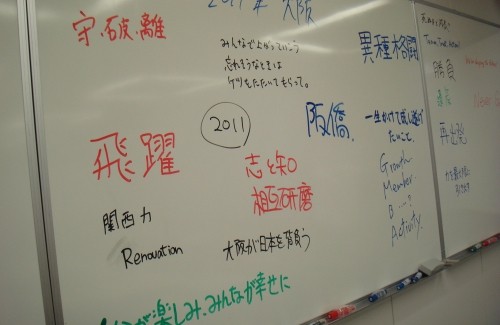 2011年 大阪
守・破・離
みんなで上がっていこう
忘れそうなときは
ケツをたたいてもらって。
異種格闘
2011
阪僑、
一生かけて成し遂げ
たいこと、
飛躍
志と知
相互研磨
Growth
Member
B...?
Activity.
関西力
Renovation
大阪が日本を背負う
が楽しみ、みんなが幸せに
勝負
再出発